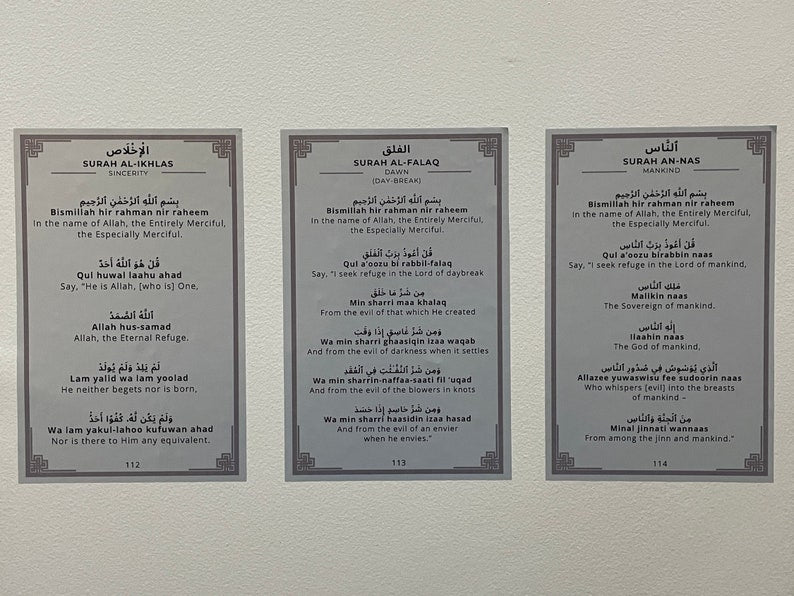 الْإِخْلَاص
SURAH AL-IKHLAS
SINCERITY
بِسْمِ اللَّهِ الرَّحْمَٰنِ الرَّحِيمِ
Bismillah hir rahman nir raheem
In the name of Allah, the Entirely Merciful,
the Especially Merciful.
قُلْ هُوَ اللَّهُ أَحَدٌ
Qul huwal laahu ahad
Say, "He is Allah, [who is] One,
اللَّهُ الصَّمَدُ
Allah hus-samad
Allah, the Eternal Refuge.
لَمْ يَلِدْ وَلَمْ يُولَدْ
Lam yalid wa lam yoolad
He neither begets nor is born,
وَلَمْ يَكُن لَّهُ كُفُوًا أَحَدٌ
Wa lam yakul-lahoo kufuwan ahad
Nor is there to Him any equivalent.
112
الفلق
SURAH AL-FALAQ
DAWN
(DAY-BREAK)
بِسْمِ اللَّهِ الرَّحْمَٰنِ الرَّحِيمِ
Bismillah hir rahman nir raheem
In the name of Allah, the Entirely Merciful,
the Especially Merciful.
قُلْ أَعُوذُ بِرَبِّ الْفَلَقِ
Qul a'oozu bi rabbil-falaq
Say, "I seek refuge in the Lord of daybreak
مِن شَرِّ مَا خَلَقَ
Min sharri maa khalaq
From the evil of that which He created
وَمِن شَرِّ غَاسِقٍ إِذَا وَقَبَ
Wa min sharri ghaasiqin izaa waqab
And from the evil of darkness when it settles
وَمِن شَرِّ النَّفَّٰثَٰتِ فِي الْعُقَدِ
Wa min sharrin-naffaa-saati fil 'uqad
And from the evil of the blowers in knots
وَمِن شَرِّ حَاسِدٍ إِذَا حَسَدَ
Wa min sharri haasidin izaa hasad
And from the evil of an envier
when he envies."
113
النَّاس
SURAH AN-NAS
MANKIND
بِسْمِ اللَّهِ الرَّحْمَٰنِ الرَّحِيمِ
Bismillah hir rahman nir raheem
In the name of Allah, the Entirely Merciful,
the Especially Merciful.
قُلْ أَعُوذُ بِرَبِّ النَّاسِ
Qul a'oozu birabbin naas
Say, "I seek refuge in the Lord of mankind,
مَلِكِ النَّاسِ
Malikin naas
The Sovereign of mankind.
إِلَٰهِ النَّاسِ
Ilaahin naas
The God of mankind,
الَّذِي يُوَسْوِسُ فِي صُدُورِ النَّاسِ
Allazee yuwaswisu fee sudoorin naas
Who whispers [evil] into the breasts
of mankind –
مِنَ الْجِنَّةِ وَالنَّاسِ
Minal jinnati wannaas
From among the jinn and mankind."
114